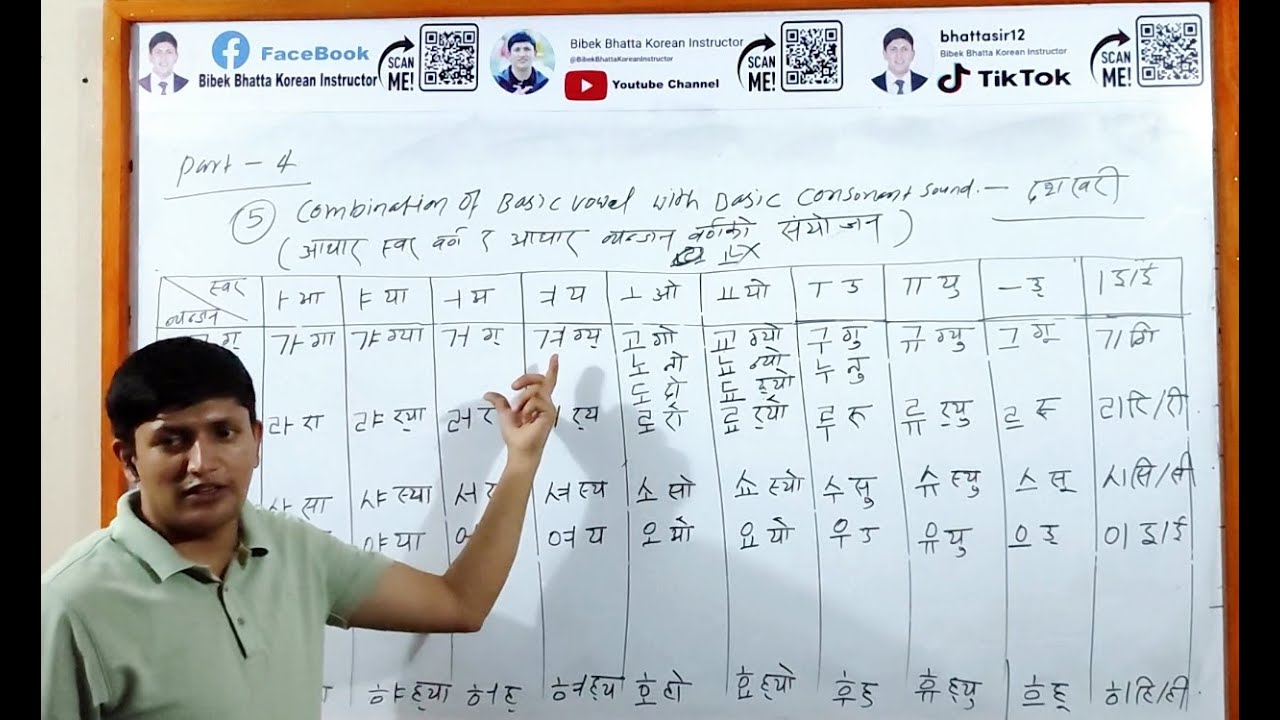 FaceBook
Bibek Bhatta Korean Instructor
SCAN ME!
Bibek Bhatta Korean Instructor
@BibekBhattaKoreanInstructor
Youtube Channel
SCAN ME!
bhattasir12
Bibek Bhatta Korean Instructor
TikTok
SCAN ME!
Part - 4
5 Combination of Basic vowel with Basic Consonant sound. -
(आधार स्वर वर्ण र आधार व्यन्जन वर्णको संयोजन)
स्वर ㅏ आ ㅑ या ㅓ ㅕ य ㅗ ओ ㅛ यो ㅜ उ ㅠ यु ㅡ ㅣ इ/ई
व्यन्जन
가 गा 갸 ग्या 거 ग् 겨 ग्य् 고 गो 교 ग्यो 구 गु 규 ग्यु 그 गू 기 गि
노 नो 뇨 न्यो 누 नु
도 दो 됴 द्यो
라 रा 랴 र्‍या 러 र र्‍य 로 रो 료 र्‍यो 루 रु 류 र्‍यु 르 रू 리 रि/री
사 सा 샤 स्या 서 셔 स्य 소 सो 쇼 स्यो 수 सु 슈 स्यु 스 सू 시 सि/सी
야 या 여 य 오 요 यो 우 उ 유 यु 으 इ् 이 इ/ई
햐 ह्या 허 ह् 혀 ह्य 호 हो 효 ह्यो 후 हु 휴 ह्यु 흐 हू 히 हि/ही